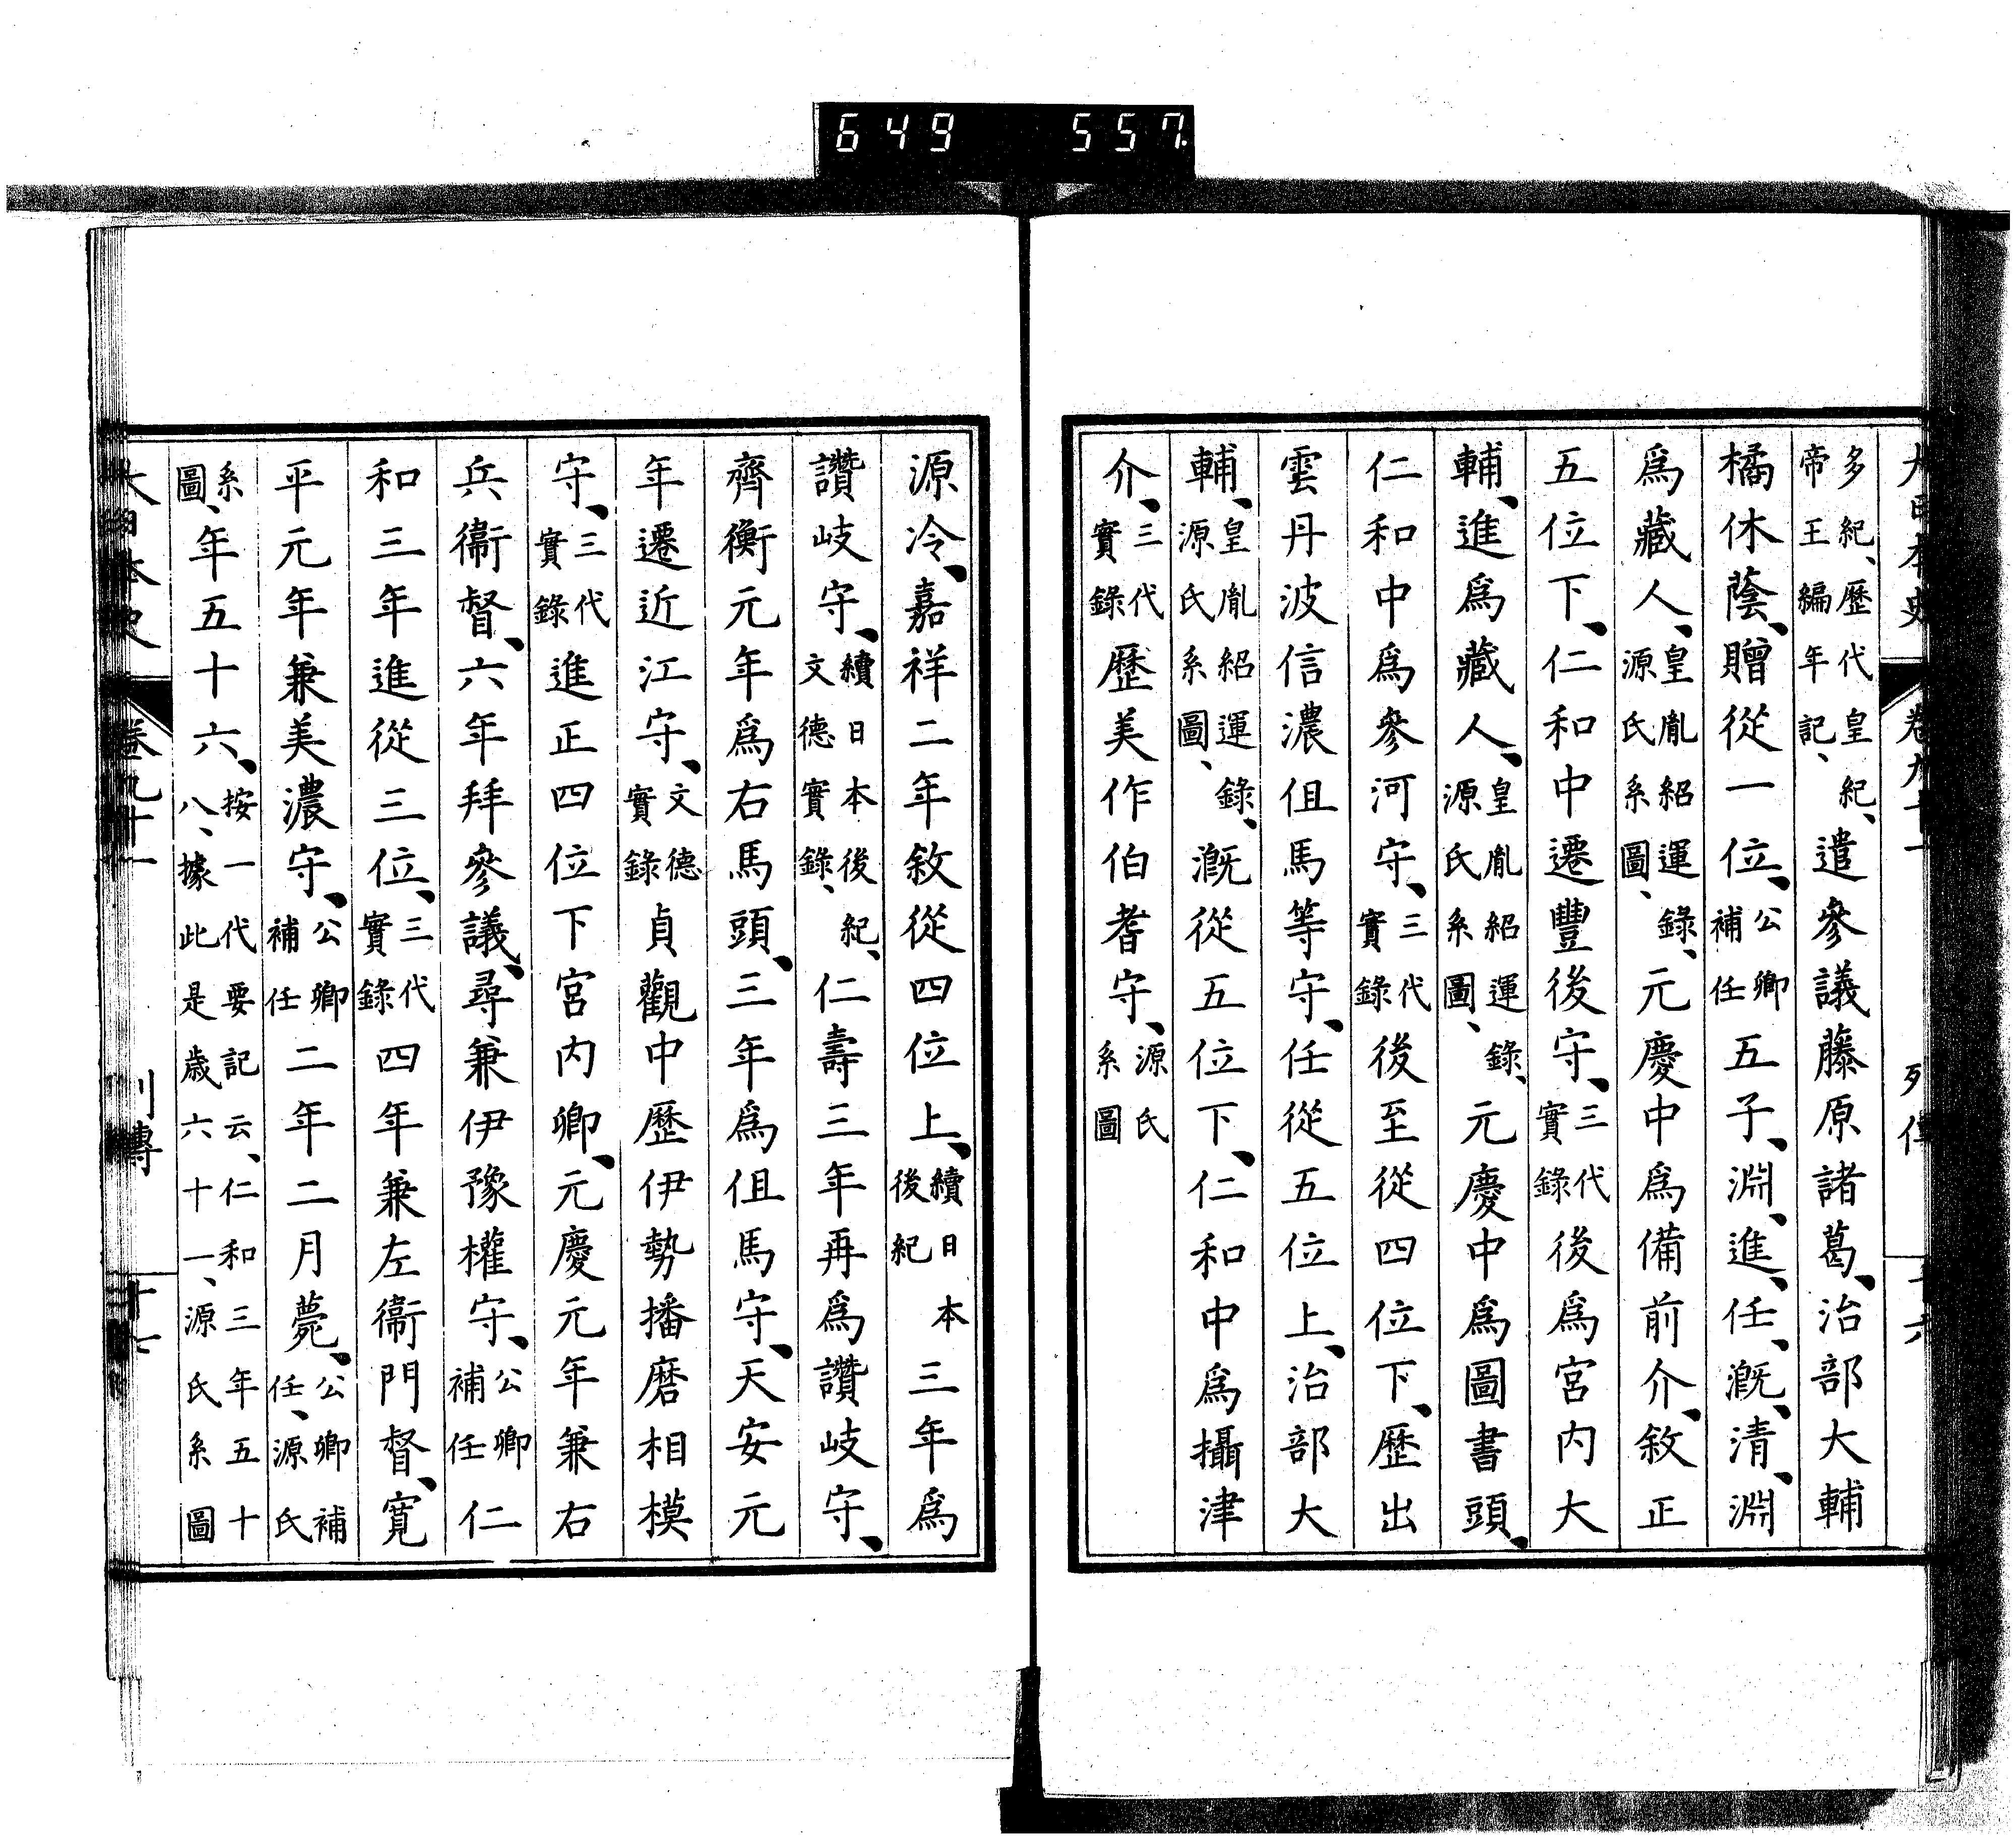 649 557.
大日本史 卷九十一 列傳 十六
多紀、歷代皇紀、帝王編年記、遣參議藤原諸葛、治部大輔
橘休蔭、贈從一位、公卿補任五子、淵、進、任、漑、清、淵
爲藏人、皇胤紹運錄、源氏系圖、元慶中爲備前介、敘正
五位下、仁和中遷豐後守、三代實錄後爲宮内大
輔、進爲藏人、皇胤紹運錄、源氏系圖、元慶中爲圖書頭、
仁和中爲參河守、三代實錄後至從四位下、歷出
雲丹波信濃伹馬等守、任從五位上、治部大
輔、皇胤紹運錄、源氏系圖、漑從五位下、仁和中爲攝津
介、三代實錄歷美作伯耆守、源氏系圖
源冷、嘉祥二年敘從四位上、續日本後紀三年爲
讚岐守、續日本後紀、文德實錄、仁壽三年再爲讚岐守、
齊衡元年爲右馬頭、三年爲伹馬守、天安元
年遷近江守、文德實錄貞觀中歷伊勢播磨相模
守、三代實錄進正四位下宮内卿、元慶元年兼右
兵衞督、六年拜參議、尋兼伊豫權守、公卿補任仁
和三年進從三位、三代實錄四年兼左衞門督、寬
平元年兼美濃守、公卿補任二年二月薨、公卿補任、源氏
系圖、年五十六、按一代要記云、仁和三年五十八、據此是歲六十一、源氏系圖
大日本史 卷九十一 列傳 十七